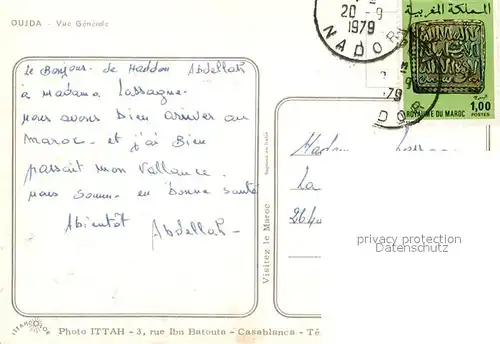 OUJDA - Vue Générale
20-9
1979
NADOR
المملكة المغربية
1,00
ROYAUME DU MAROC POSTES
79
DOR
le Bonjour de Haddou Abdellah
à Madame Lassagne
nous avons bien arriver au
maroc - et j'ai Bien
passait mon Vallance.
nous somme en bonne santé
Abientôt Abdellah -
Imprimé en Italie
Visitez le Maroc
La
privacy protection
Oldthing.de
ITTAHCOLOR
Photo ITTAH - 3, rue Ibn Batouta - Casablanca - Té